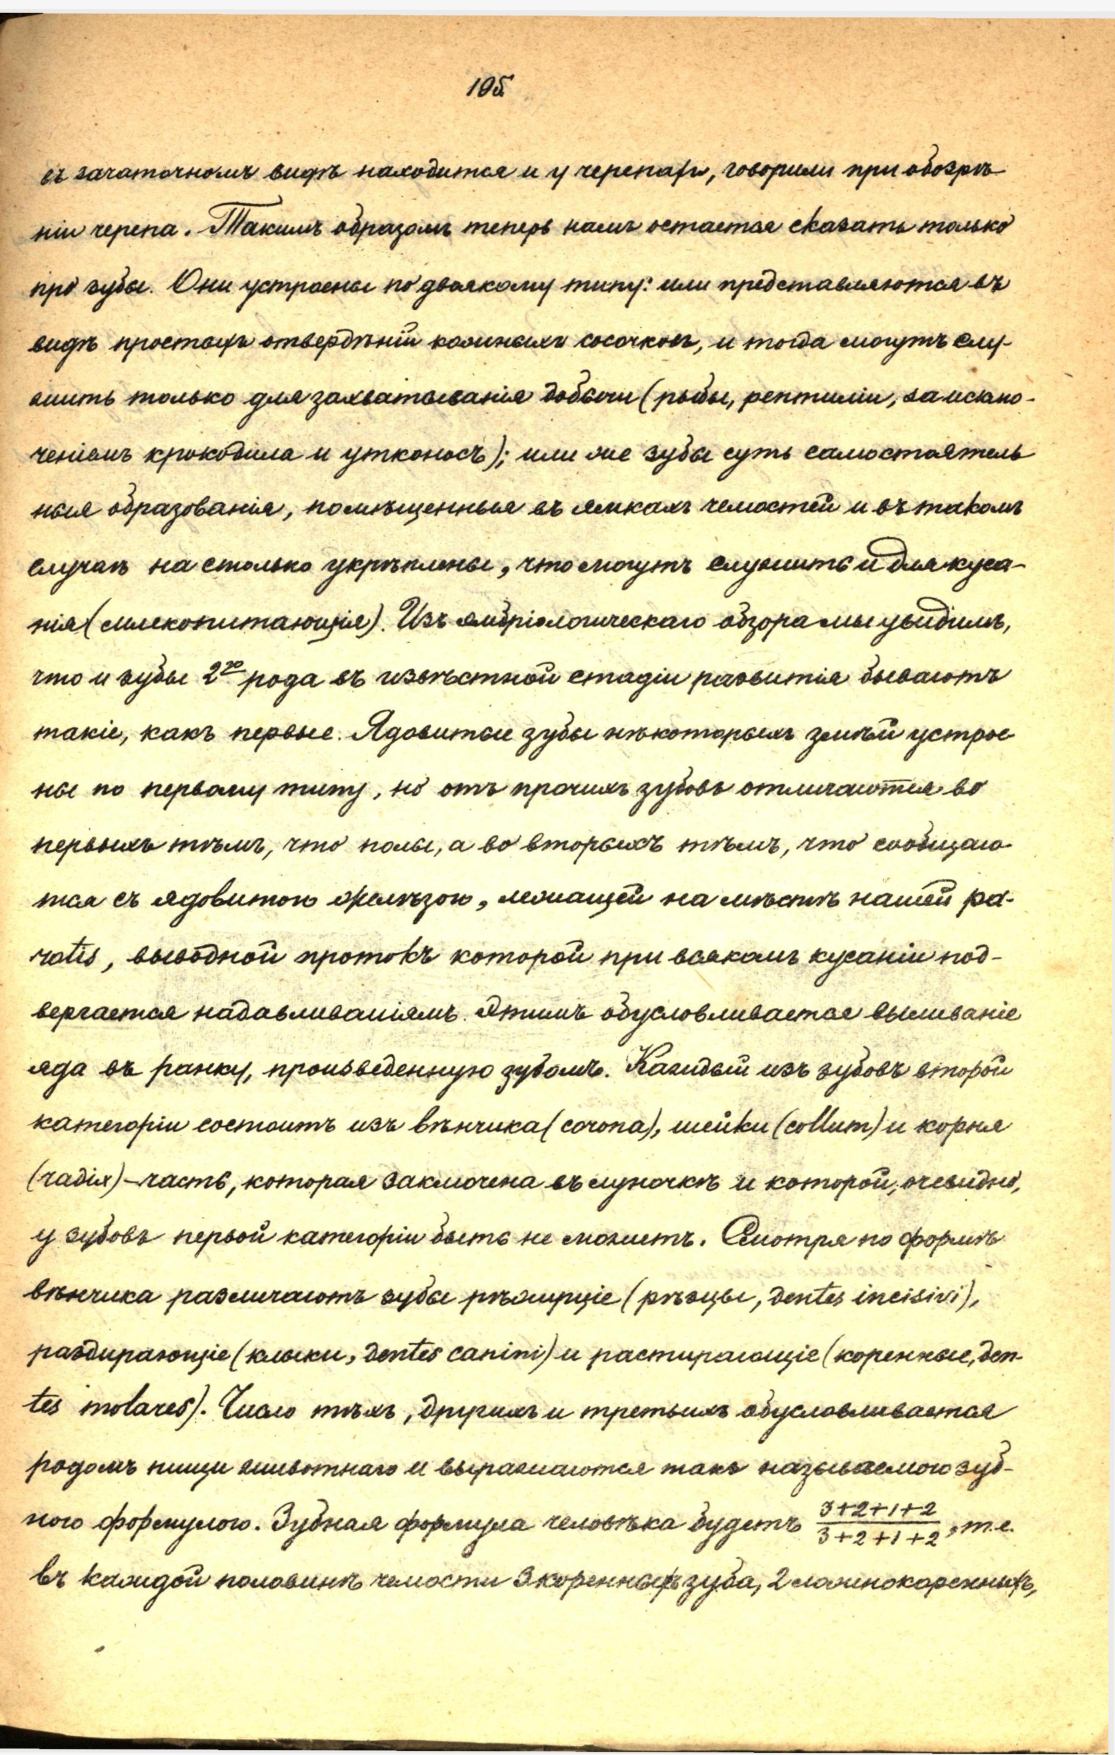 195
въ зачаточномъ видѣ находится и у черепахъ, говорили при обозрѣ
ніи черепа. Такимъ образомъ теперь намъ остается сказать только
про зубы. Они устроены по двоякому типу: или представляются въ
видѣ простыхъ отвердѣній кожныхъ сосочковъ, и тогда могутъ слу-
жить только для захватыванія добычи (рыбы, рептиліи, за исклю-
ченіемъ крокодила и утконосъ); или же зубы суть самостоятель
ныя образованія, помѣщенныя въ ямкахъ челюстей и въ такомъ
случаѣ на столько укрѣплены, что могутъ служить и для куса-
нія (млекопитающія). Изъ эмбріологическаго обзора мы увидимъ,
что и зубы 2го рода въ извѣстной стадіи развитія бываютъ
такіе, какъ первые. Ядовитые зубы нѣкоторыхъ змѣй устрое
ны по первому типу, но отъ прочихъ зубовъ отличаются во
первыхъ тѣмъ, что полы, а во вторыхъ тѣмъ, что сообщаю-
тся съ ядовитою железою, лежащей на мѣстѣ нашей pa-
rotis, выводной протокъ которой при всякомъ кусаніи под-
вергается надавливаніямъ. Этимъ обусловливается выливаніе
яда въ ранку, произведенную зубомъ. Каждый изъ зубовъ второй
категоріи состоитъ изъ вѣнчика (corona), шейки (collum) и корня
(radix) – часть, которая заключена въ луночкѣ и которой, очевидно,
у зубовъ первой категоріи быть не можетъ. Смотря по формѣ
вѣнчика различаютъ зубы рѣжущіе (рѣзцы, dentes incisivi),
раздирающіе (клыки, dentes canini) и растирающіе (коренные, den-
tes molares). Число тѣхъ, другихъ и третьихъ обусловливается
родомъ пищи животнаго и выражаются такъ называемою зуб-
ною формулою. Зубная формула человѣка будетъ 3+2+1+2/3+2+1+2, т.е.
въ каждой половинѣ челюсти 3 коренныхъ зуба, 2 ложнокоренныхъ,